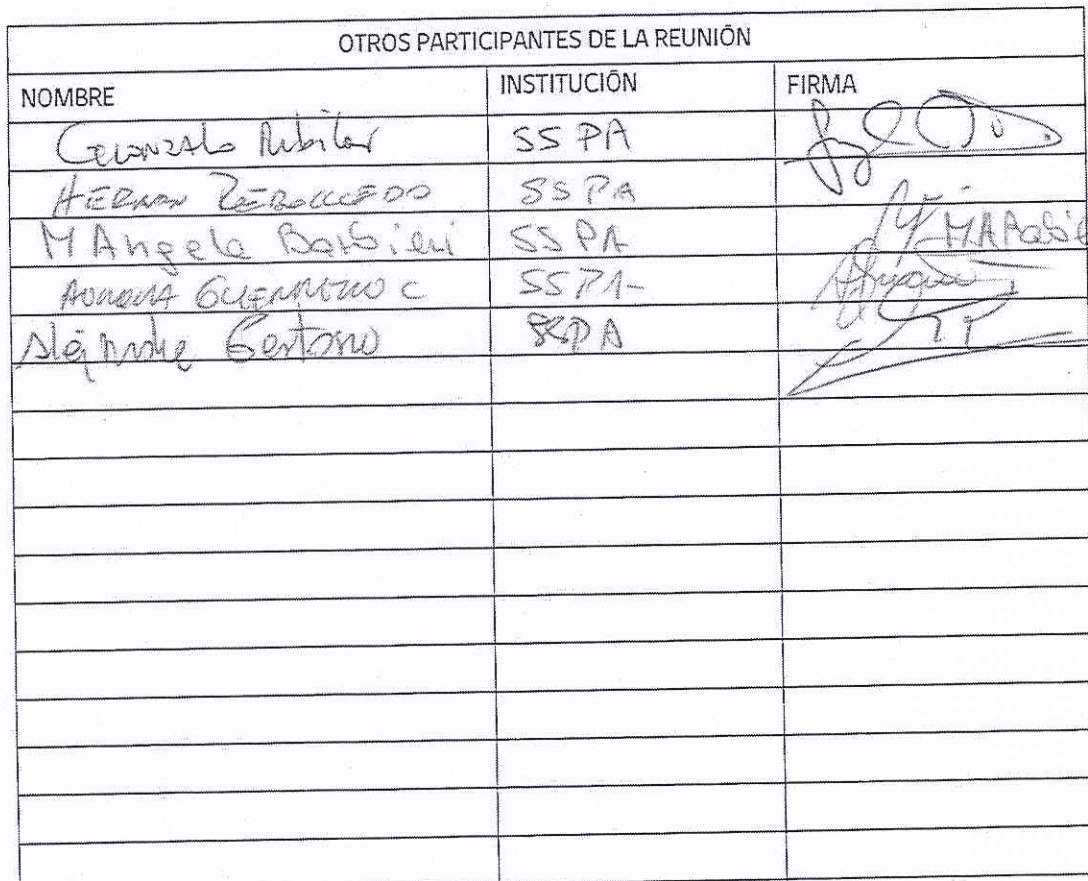 OTROS PARTICIPANTES DE LA REUNIÓN
NOMBRE INSTITUCIÓN FIRMA
Gonzalo Rubilar SSPA
HERNAN REBOLLEDO SSPA
M Angela Barbieri SSPA
AURORA GUERRERO C SSPA
Alejandro SSPA